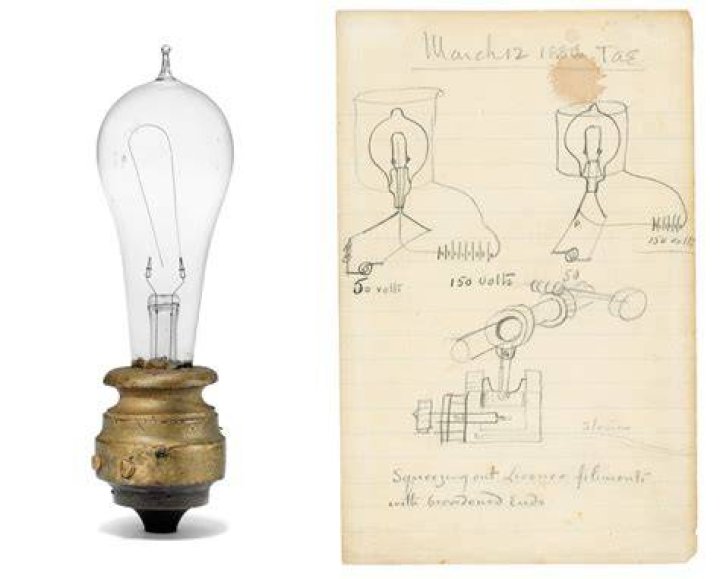 March 12 188 TAE
50 volts
150 volts
50
150 volts
Squeezing out filiments
with broadened Ends